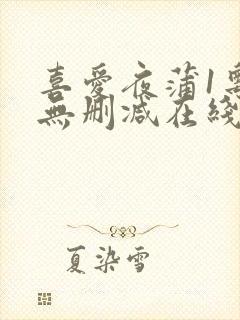 喜愛夜蒲1
無刪減在綫
夏染雪